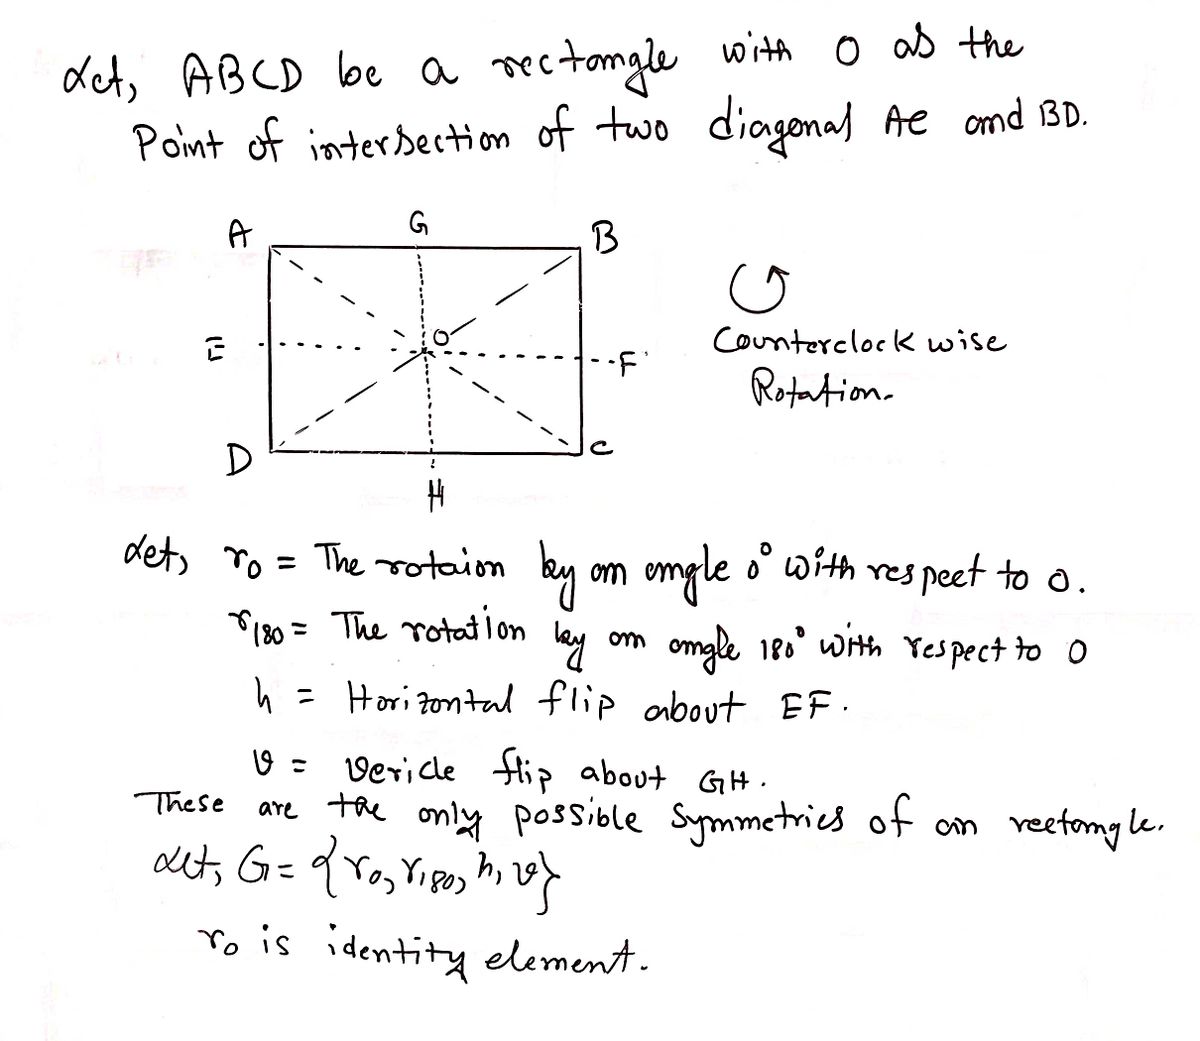 Let, ABCD be a rectangle with O as the
Point of intersection of two diagonal AC and BD.
A G B
E O F
D H C
Counterclockwise
Rotation.
Let, r₀ = The rotaion by an angle 0° with respect to O.
r₁₈₀ = The rotation by an angle 180° with respect to O
h = Horizontal flip about EF.
v = Vericle flip about GH.
These are the only possible symmetries of an rectangle.
Let, G = {r₀, r₁₈₀, h, v}
r₀ is identity element.